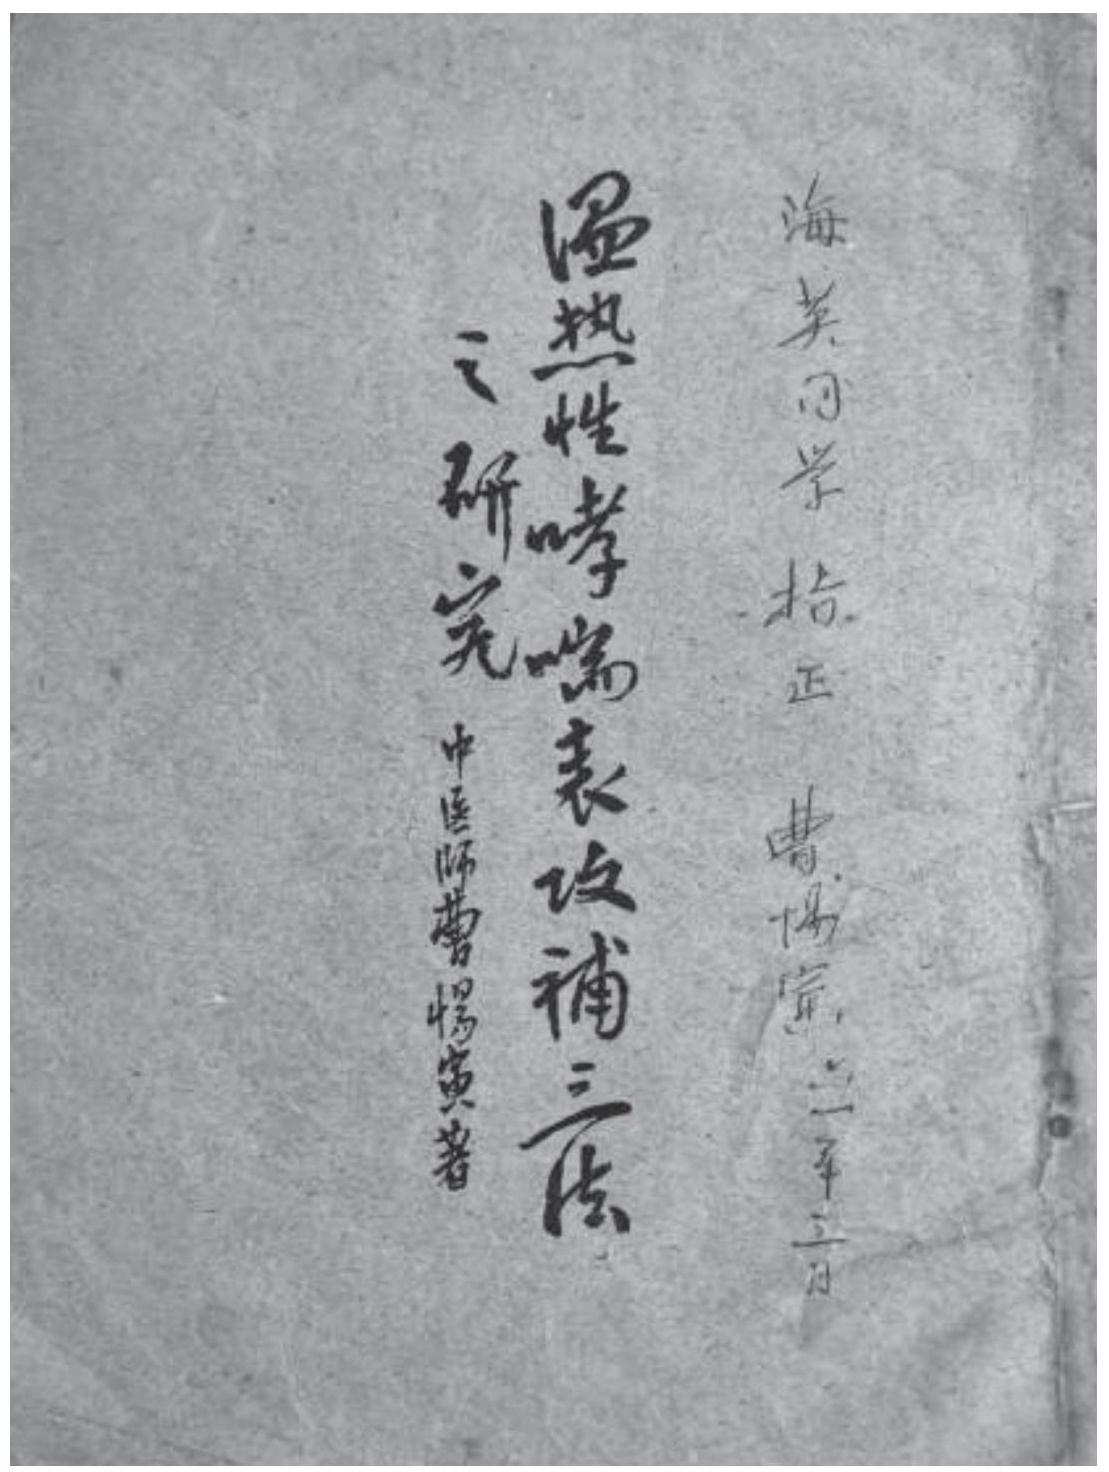 海英同学 指正 曹惕寅 六一年三月
温热性哮喘表攻補三法
之研究 中医师曹惕寅著